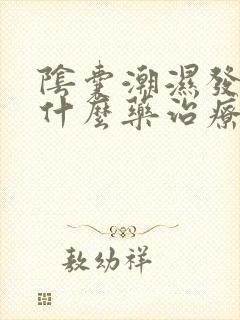 陰囊潮濕發
什麼藥治療
敖幼祥